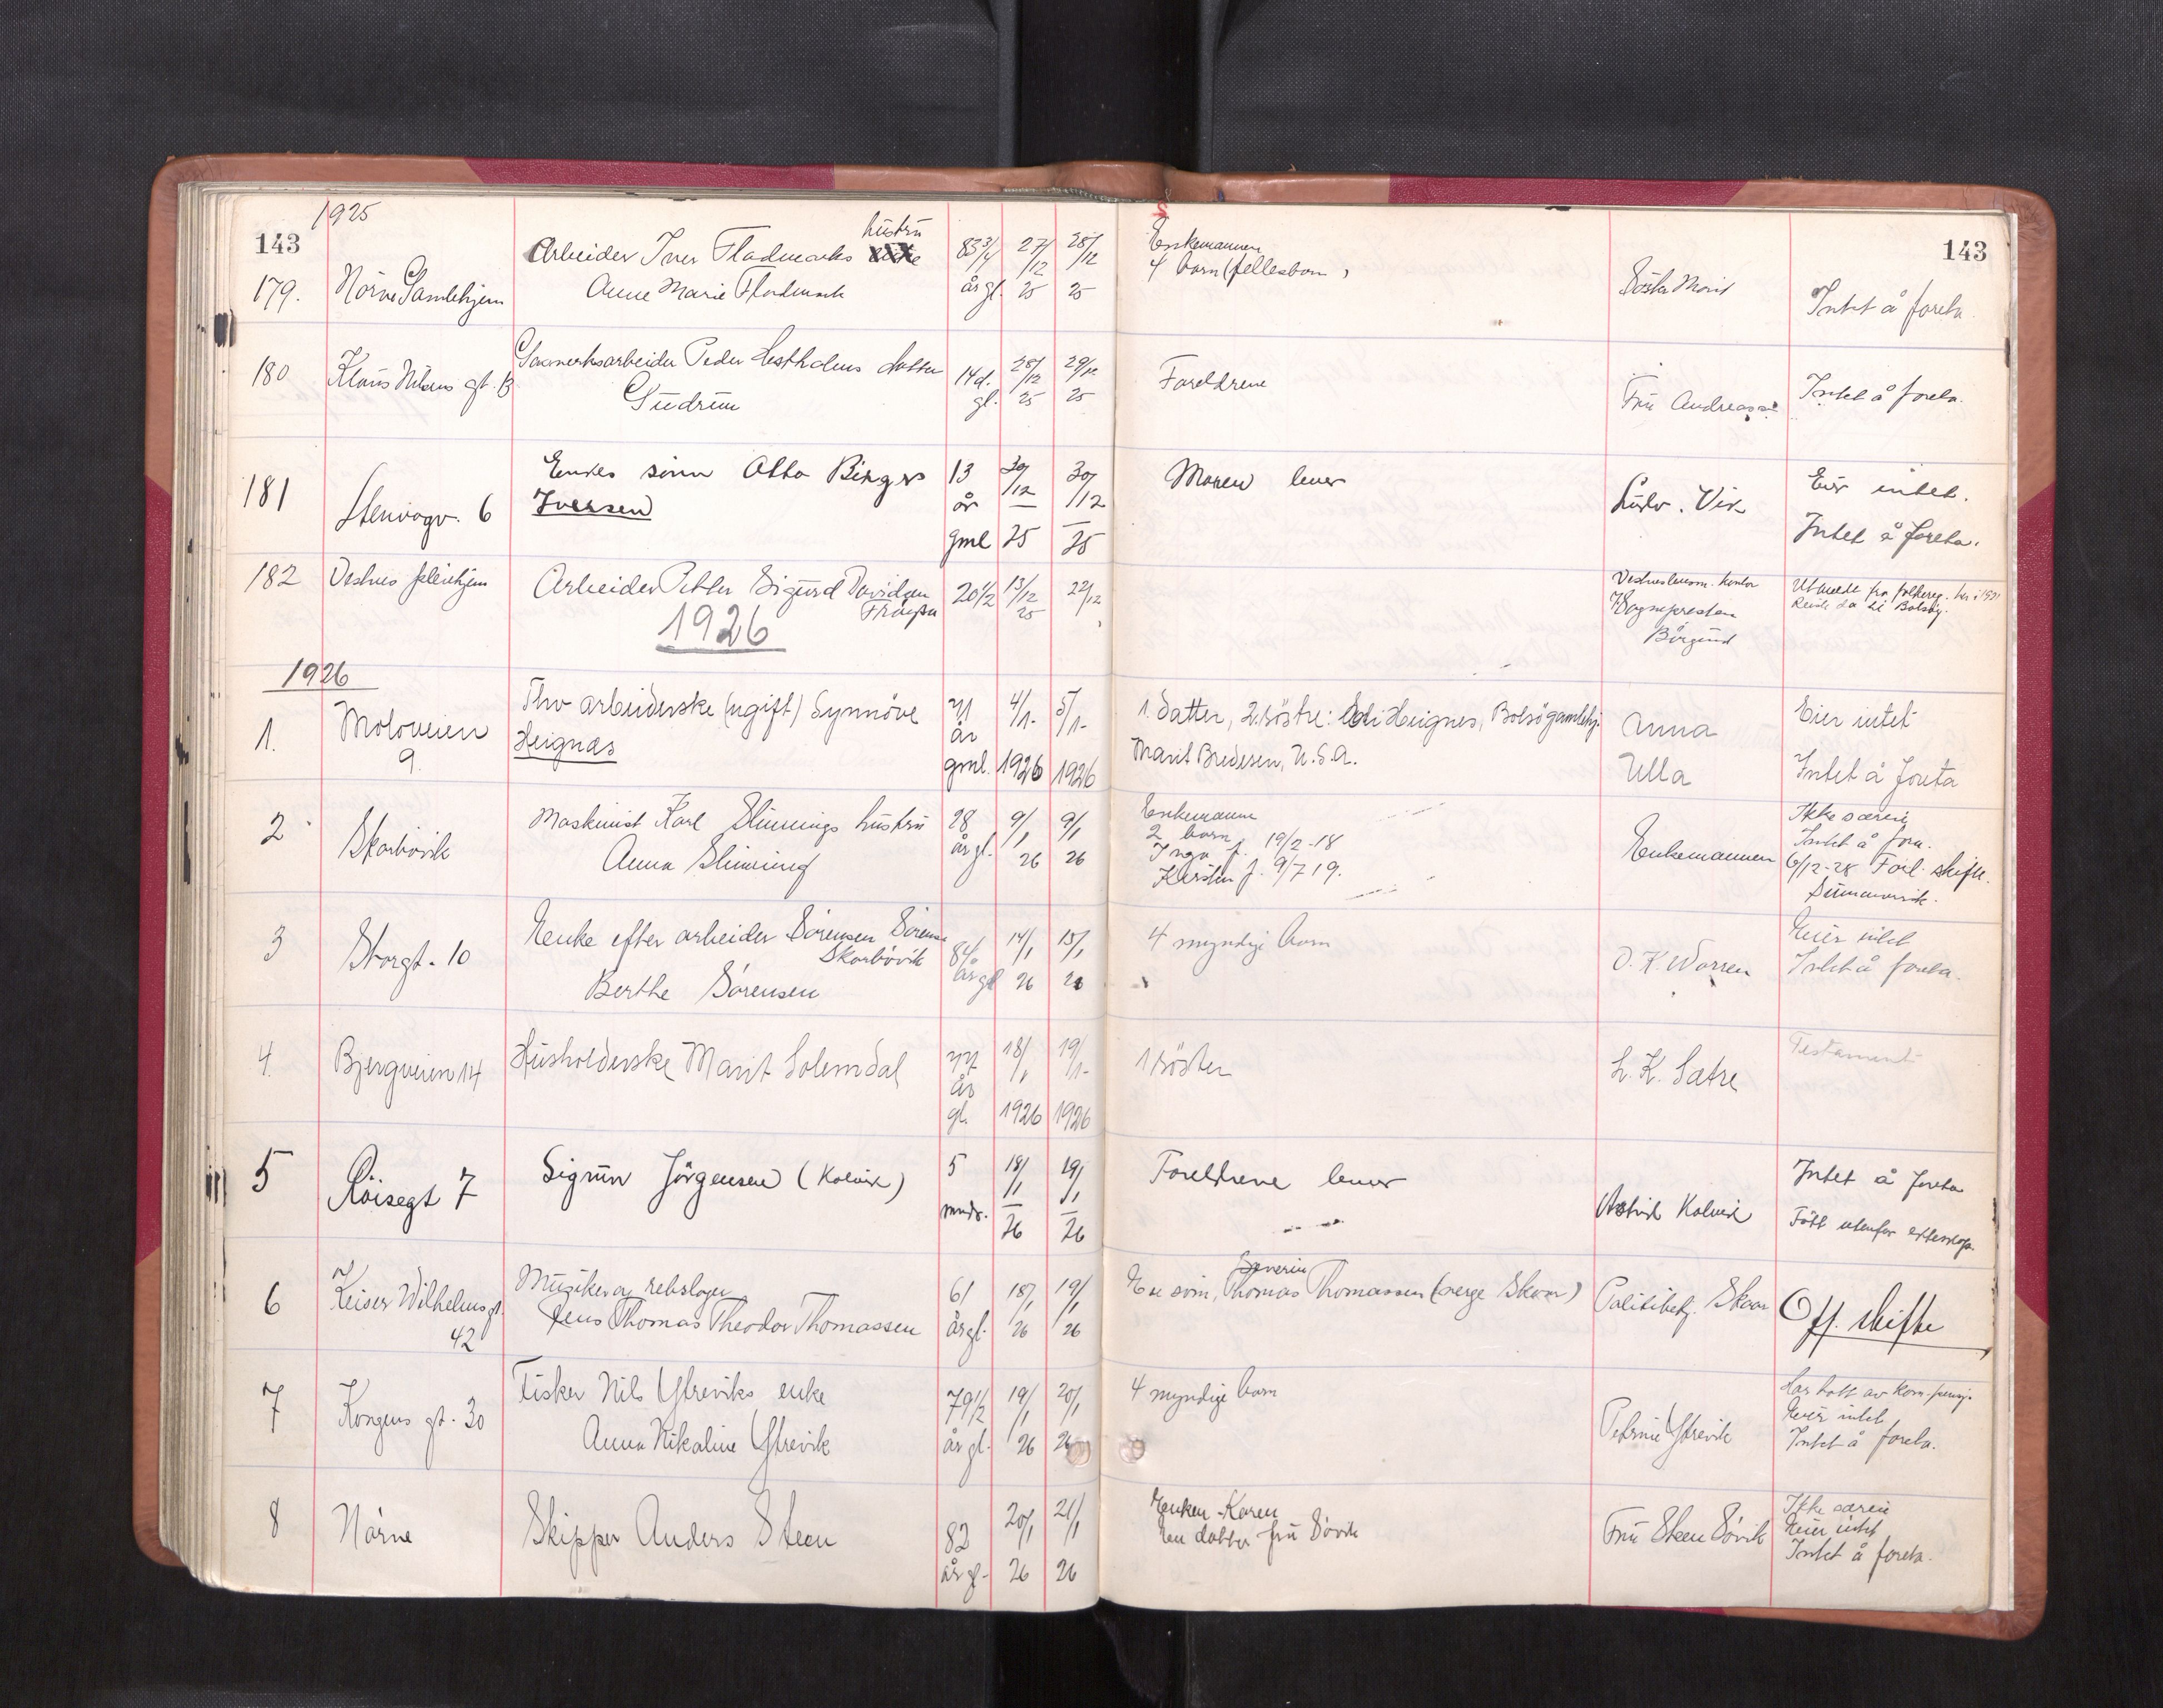 1925
143
143
179. Nörve Gamlehjem
Arbeider Iver Fladmarks hustru
Anne Marie Fladmark
83 3/4 år gl. 27/12 25 28/12 25
Enkemannen
4 barn (fellesbarn)
Söster Marit
Intet å foreta.
180 Klaus Nilsens gt. 13
Peder Hestholms datter
Gudrun
14 d. gl. 28/12 25 29/12 25
Foreldrene
Fru
Intet å foreta.
181 Stenvågv. 6
Enkes sönn Otto Birger
Iversen
13 år gml 30/12 25 30/12 25
Moren lever
Ludv. Vik
Eier intet.
Intet å foreta.
182 Vestnes pleiehjem
Arbeider Petter Sigurd Davidsen
20 1/2 13/12 25 22/12
1926
Vestnes lensm. kontor
Sognepresten
Borgund
Utmeldt fra folkereg. her i 1921
Reiste da til Bolsöy.
1926
1. Moloveien 9.
Fhv arbeiderske (ugift) Synnöve
Heignes
71 år gml. 4/1- 1926 5/1- 1926
1 datter, 2 söstre: Heignes, Bolsö gamlehj.
Marit Bredesen, U.S.A.
Anna
Ulla
Eier intet
Intet å foreta
2 Skarbövik
Maskinist Karl Slinnings hustru
Anna Slinning
28 år gl. 9/1 26 9/1 26
Enkemann
2 barn
Inga f. 19/2-18
Kirsten f. 9/7 19.
Enkemannen
Ikke særeie
Intet å fore.
6/12-28 Forl. skifte.
3 Storgt. 10
Enke efter arbeider Sörensen
Skarbövik
Berthe Sörensen
84 år gl 14/1 26 15/1 26
4 myndige barn
O. K. Warren
Eier intet
Intet å foreta.
4. Bjergveien 14
Husholderske Marit Solemdal
77 år gl. 18/1 1926 19/1- 1926
1 söster
L. K. Sætre
Testament
5 Röisegt 7
Sigrun Jörgensen (Kolvik)
5 mndr. 18/1 26 19/1 26
Foreldrene lever
Astrid Kolvik
Intet å foreta
Född utenfor ekteskap.
6 Keiser Wilhelms gt. 42
Musiker og rebslager
Jens Thomas Theodor Thomassen
61 år gl. 18/1 26 19/1 26
Severin
En sönn, Thomas Thomassen (verge Skaar)
Politibetj. Skaar
Off. skifte
7 Kongens gt. 30
Fisker Nils Ytreviks enke
Anna Nikoline Ytrevik
79 1/2 år gl. 19/1 26 20/1 26
4 myndige barn
Petrine Ytrevik
Har hatt av kom. pensj.
Eier intet
Intet å foreta.
8 Nörve
Skipper Anders Steen
82 år gl. 20/1 26 21/1 26
Enken Karen
En datter fru Sövik
Fru Steen Sövik
Ikke særeie
Eier intet
Intet å foreta.